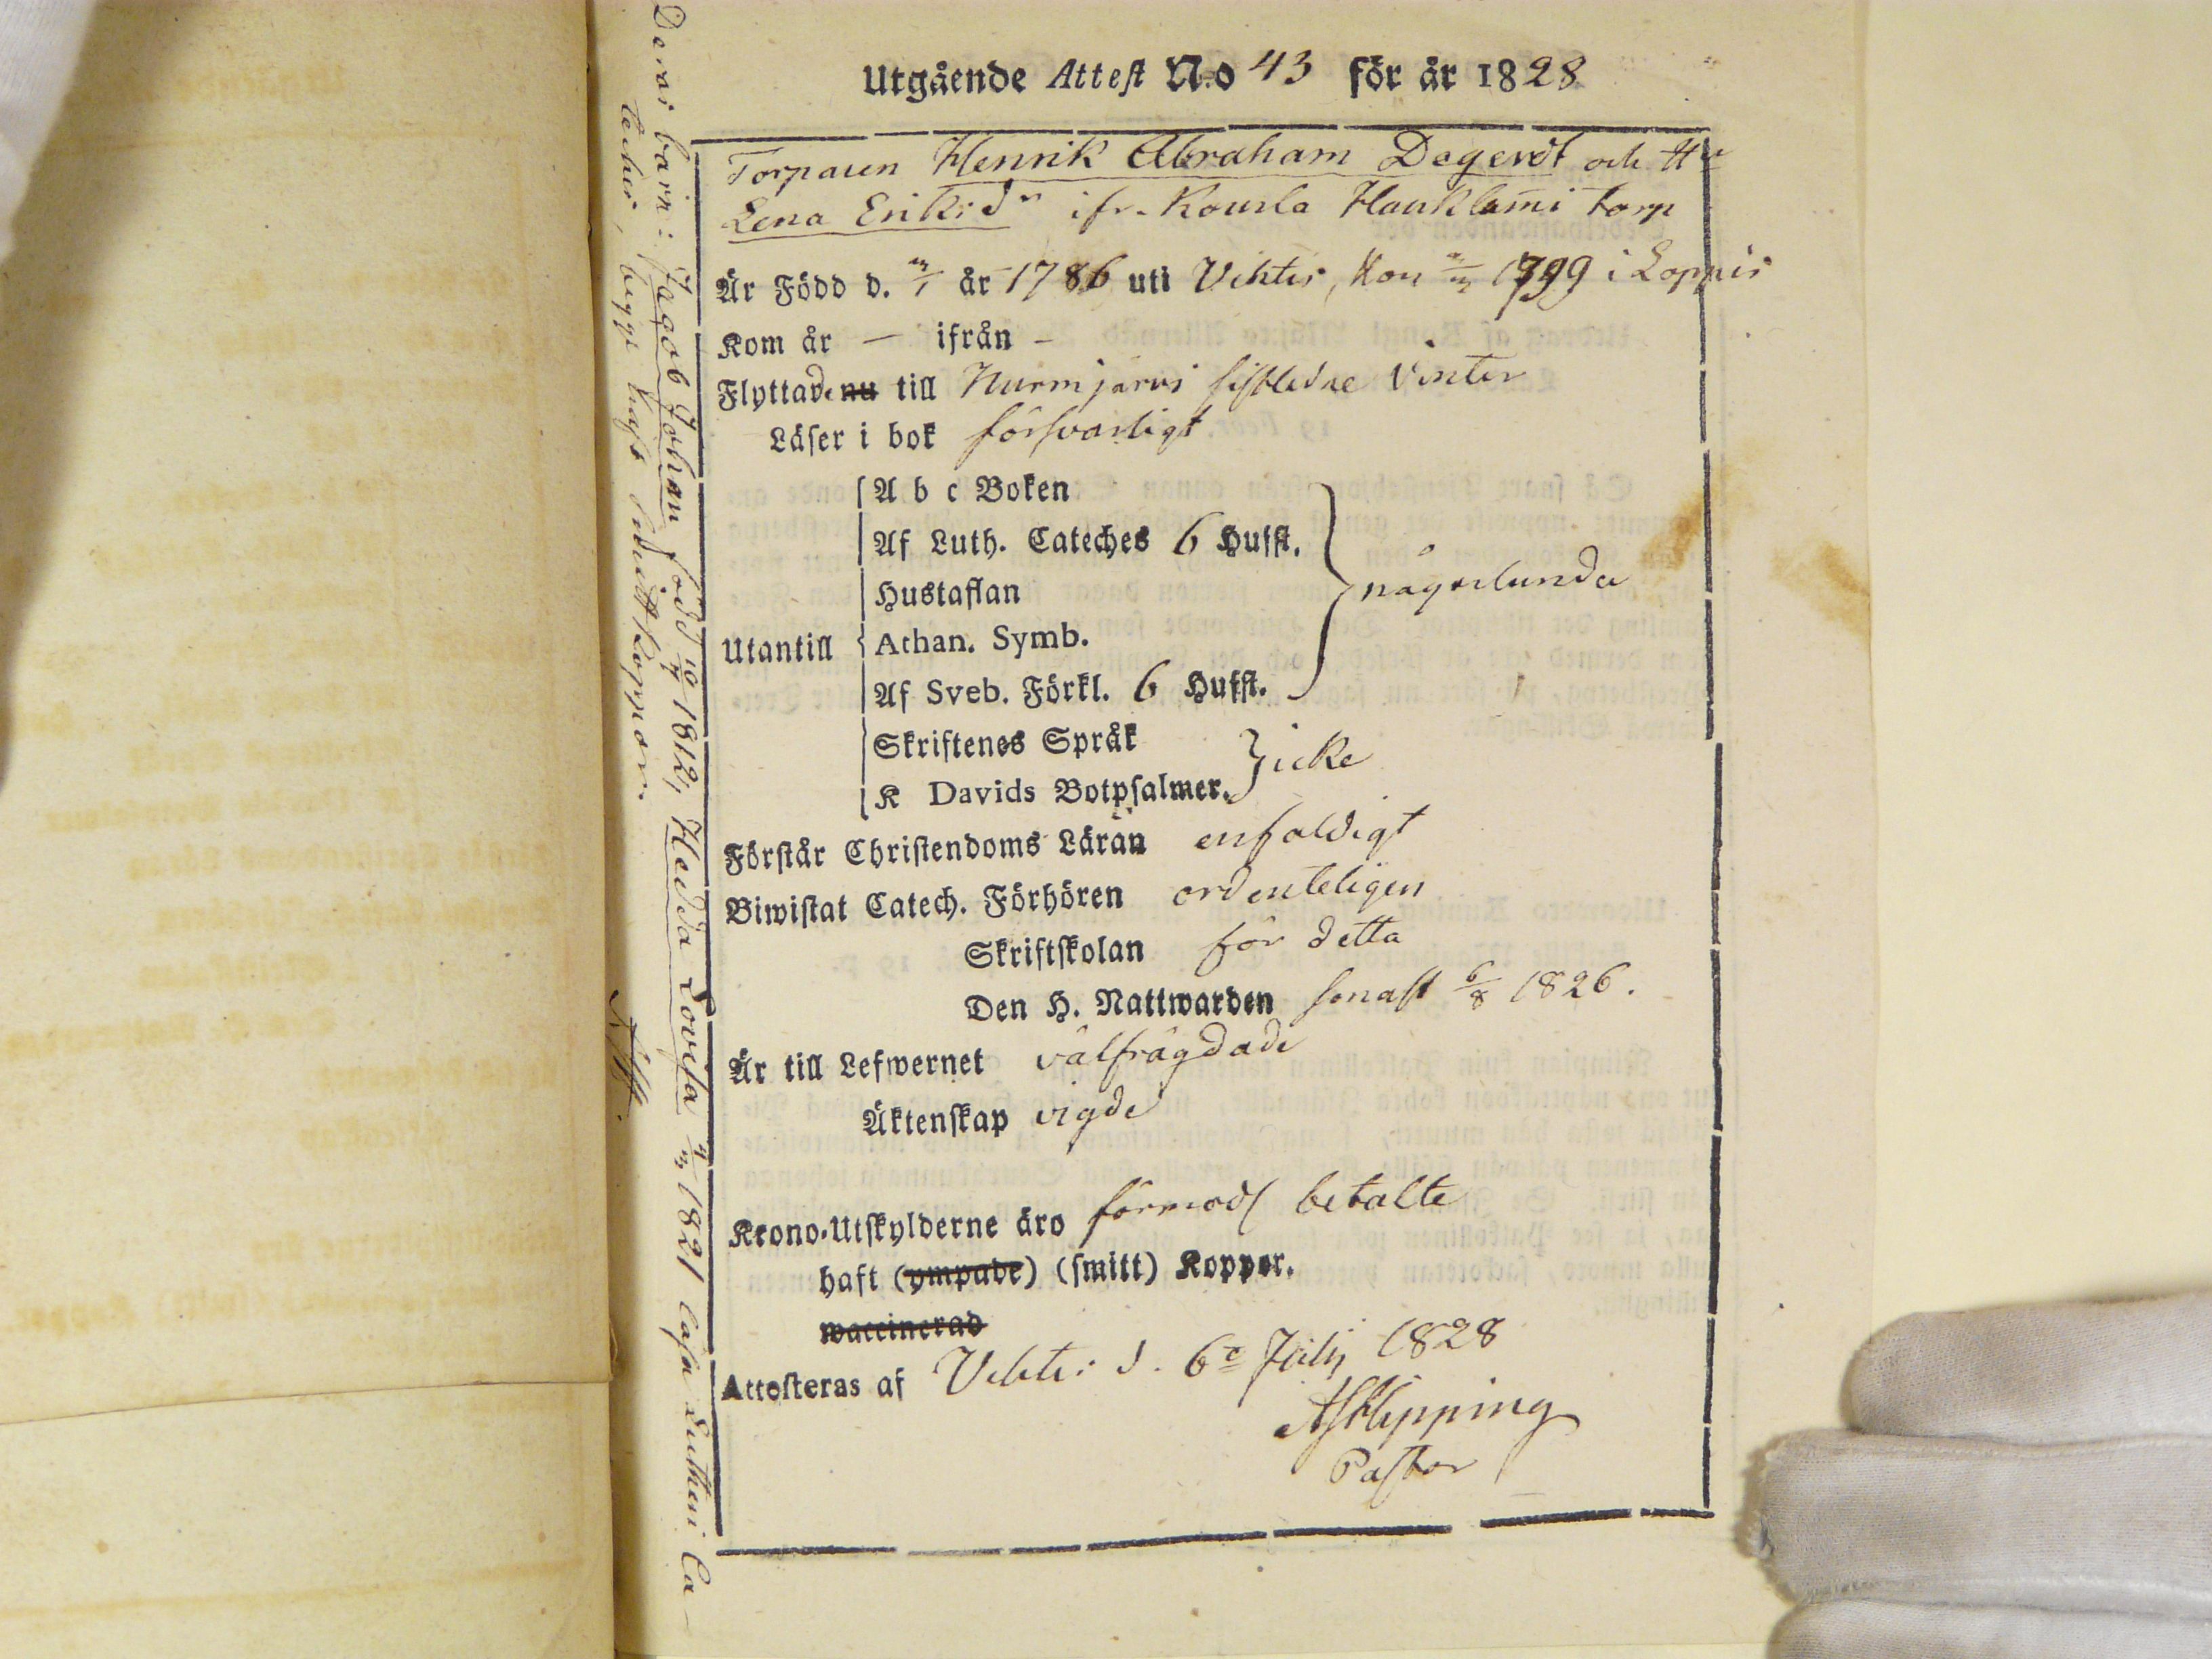 Utgående Attest N:o 43 för år 1828
Torparen Henrik Abraham Degerdt och Hu
Lena Eriksdr ifr. Kourla Hauklami torp
Är Född d. år 1786 uti Vihtis, Hon 1799 i Loppis
Kom år — ifrån —
Flyttade nu till Nurmijärvi sistledne Vinter
Läser i bok försvarligt
A b c Boken
Af Luth. Cateches 6 Hufst.
Hustaflan
någorlunda
Utantill
Athan. Symb.
Af Sveb. Förkl. 6 Hufst.
Skriftenes Språk
icke
K Davids Botpsalmer.
Förstår Christendoms Läran enfaldigt
Biwistat Catech. Förhören ordenteligen
Skriftskolan för detta
Den H. Nattwarden senast 6/8 1826.
Är till Lefwernet välfrägdade
Äktenskap vigde
Krono-Utskylderne äro förmodl betalte
haft (ympade) (smitt) Koppor.
waccinerad
Attesteras af Vihtis d. 6e Julij 1828
Klipping
Pastor
Deras barn: Jacob Johan född 10/4 1812, Hedda Lovisa 4/3 1821 läsa Lutheri Ca-
teches, begge haft smittkoppor.